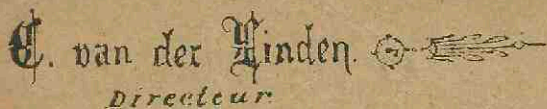 C. van der Linden.
Directeur